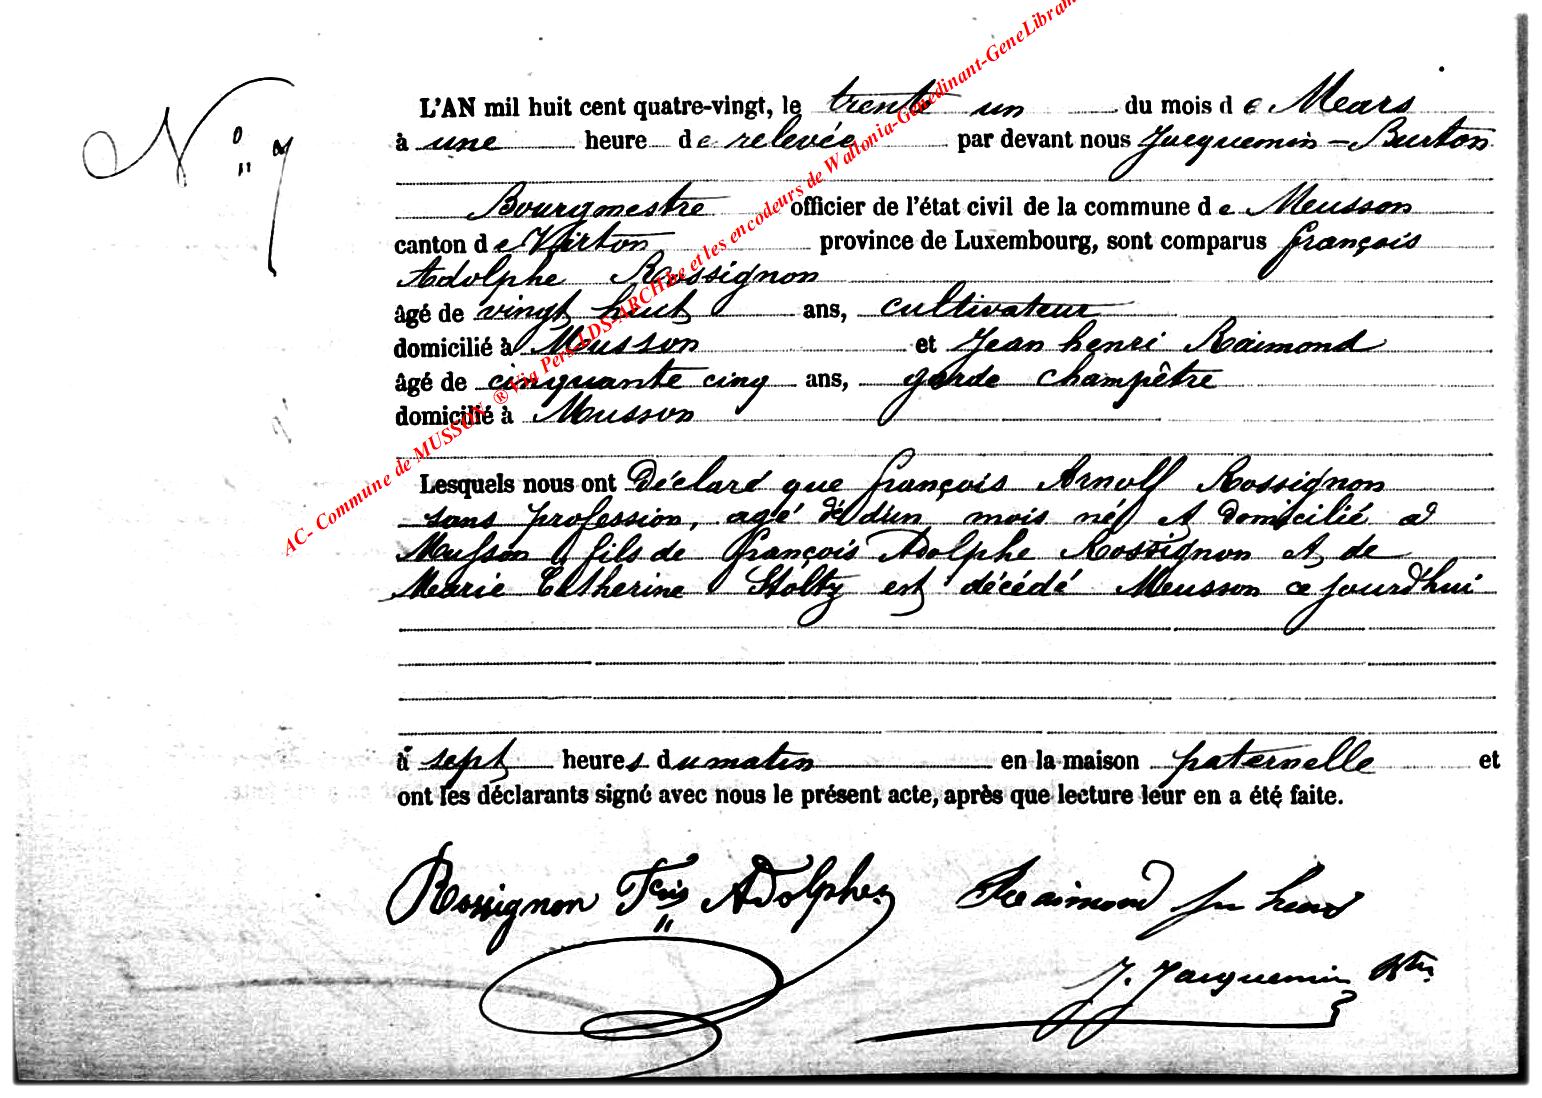 N° 7
L'AN mil huit cent quatre-vingt, le trente un du mois de Mars
à une heure de relevée par devant nous Jacquemin - Burton
Bourgmestre officier de l'état civil de la commune de Musson
canton de Virton province de Luxembourg, sont comparus François
Adolphe Rossignon
âgé de vingt huit ans, cultivateur
domicilié à Musson et Jean henri Raimond
âgé de cinquante cinq ans, garde champêtre
domicilié à Musson
Lesquels nous ont Déclaré que François Arnolf Rossignon
sans profession, agé d'un mois né et domicilié à
Musson fils de François Adolphe Rossignon et de
Marie Catherine Stoltz est décédé Musson ce jourd'hui
à sept heures du matin en la maison paternelle et
ont les déclarants signé avec nous le présent acte, après que lecture leur en a été faite.
Rossignon Fcois Adolphe Raimond
J. Jacquemin Btn
AC- Commune de MUSSON ® Via Pers-LDS-ARCHbe et les encodeurs de Wallonia-Genedinant-GeneLibran